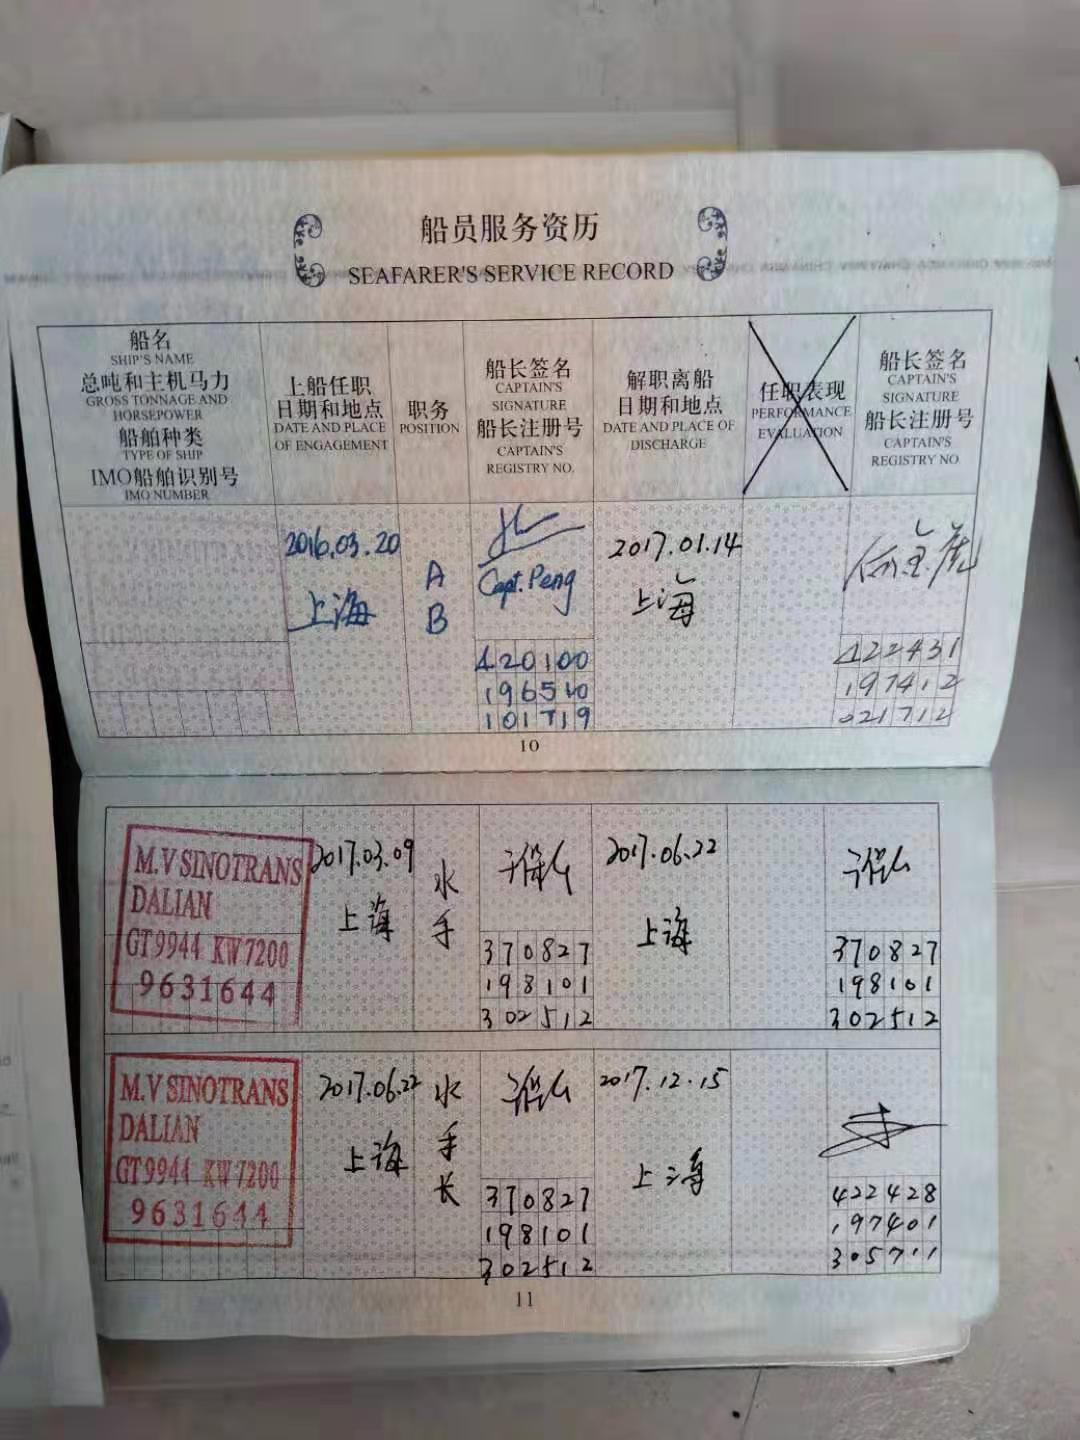 船员服务资历
SEAFARER'S SERVICE RECORD
船名
SHIP'S NAME
总吨和主机马力
GROSS TONNAGE AND
HORSEPOWER
船舶种类
TYPE OF SHIP
IMO船舶识别号
IMO NUMBER
上船任职
日期和地点
DATE AND PLACE
OF ENGAGEMENT
职务
POSITION
船长签名
CAPTAIN'S
SIGNATURE
船长注册号
CAPTAIN'S
REGISTRY NO.
解职离船
日期和地点
DATE AND PLACE OF
DISCHARGE
任职表现
PERFORMANCE
EVALUATION
船长签名
CAPTAIN'S
SIGNATURE
船长注册号
CAPTAIN'S
REGISTRY NO.
2016.03.20
上海
A
B
Capt. Peng
420100
196510
101719
2017.01.14
上海
422431
197412
021712
10
M.V SINOTRANS
DALIAN
GT9944 KW7200
9631644
2017.03.09
上海
水
手
370827
198101
302512
2017.06.22
上海
370827
198101
302512
M.V SINOTRANS
DALIAN
GT9944 KW7200
9631644
2017.06.22
上海
水
手
长
370827
198101
302512
2017.12.15
上海
422428
197401
305711
11